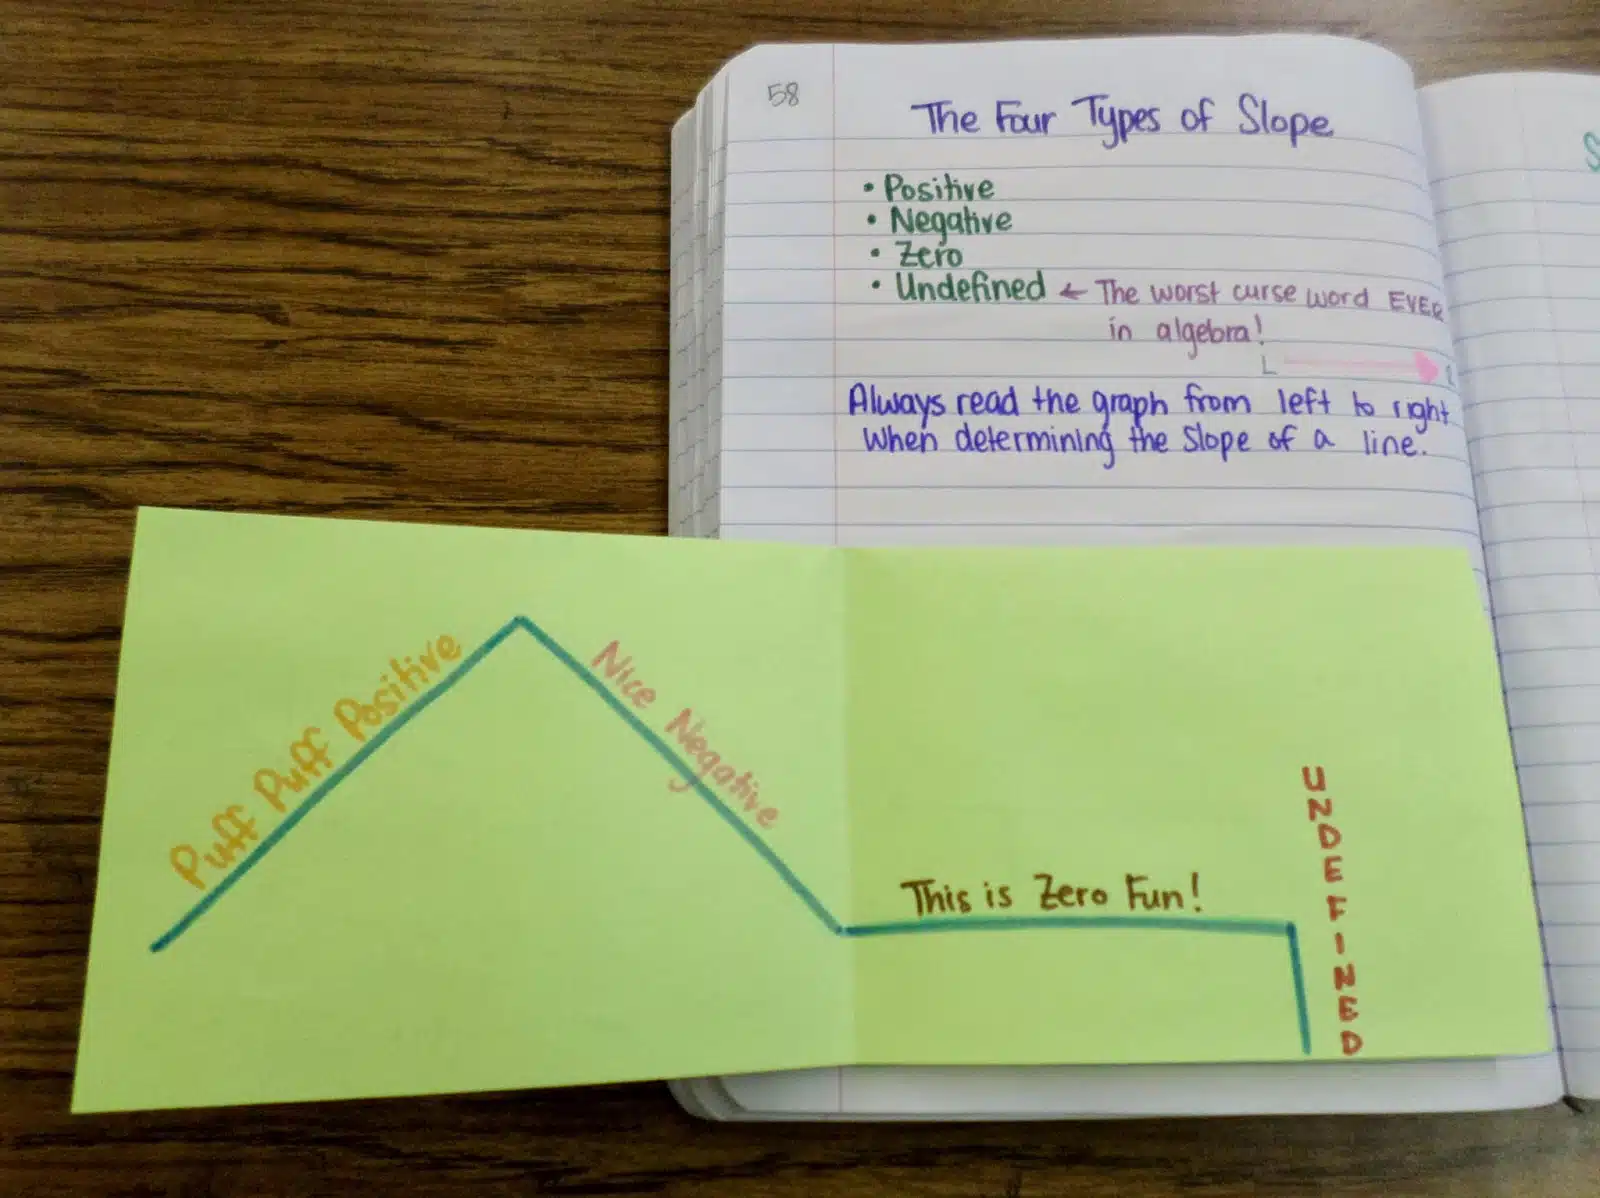 58
The Four Types of Slope
• Positive
• Negative
• Zero
• Undefined ← The worst curse word EVER
in algebra!
L
Always read the graph from left to right
when determining the slope of a line.
Puff Puff Positive
Nice Negative
This is Zero Fun!
UNDEFINED